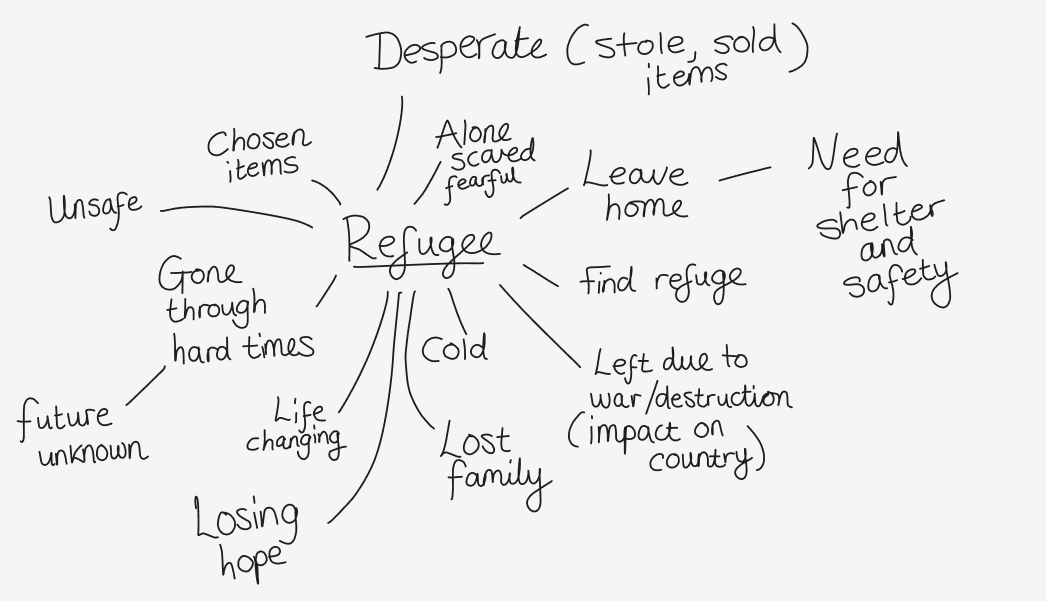 Desperate (stole, sold)
items
Chosen
items
Alone
scared
fearful
Unsafe
Refugee
Leave
home
Need
for
shelter
and
safety
Gone
through
hard times
find refuge
future
unknown
Life
changing
Cold
Left due to
war/destruction
(impact on
country)
Lost
family
Losing
hope